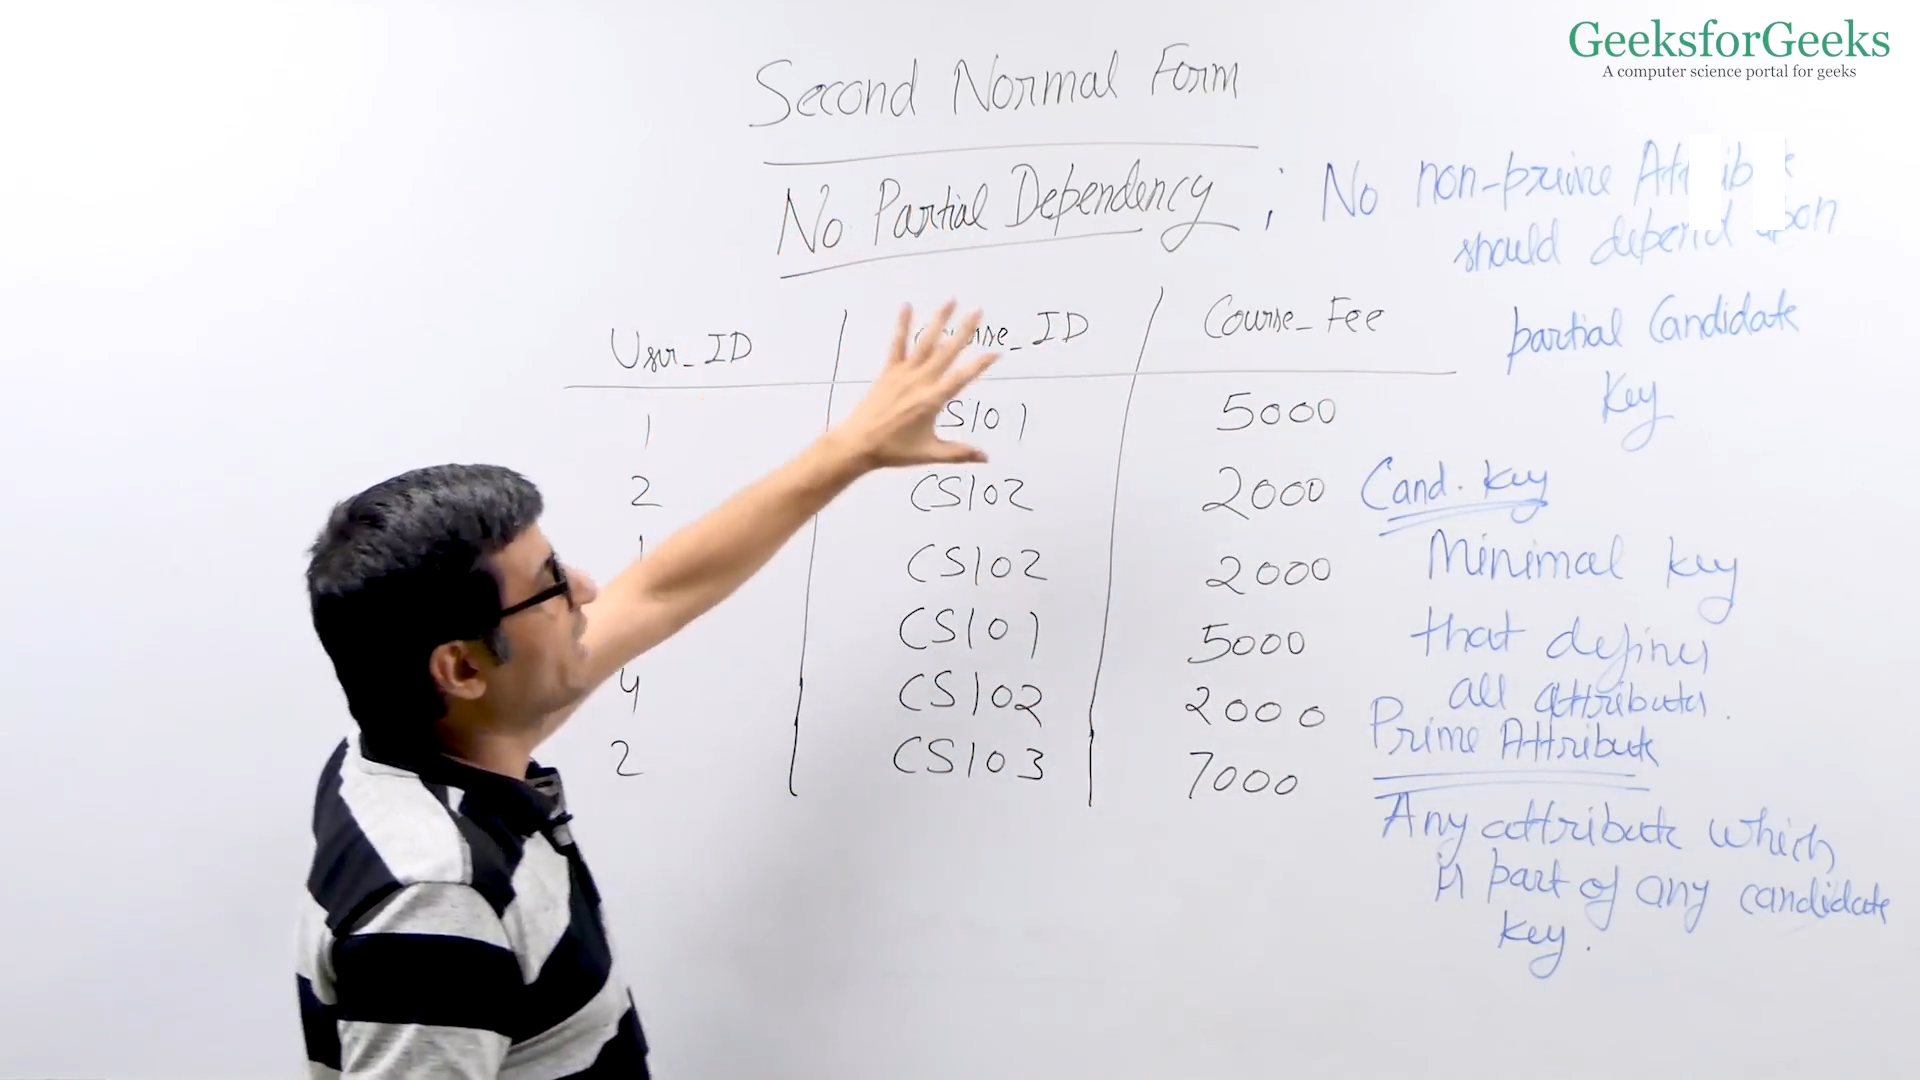 GeeksforGeeks
A computer science portal for geeks
Second Normal Form
No Partial Dependency ; No non-prime
should depend
partial Candidate
Key
User_ID _ID Course_Fee
1 5000
2 CS102 2000
1 CS102 2000
CS101 5000
4 CS102 2000
2 CS103 7000
Cand. Key
Minimal key
that defines
all attributes.
Prime Attribute
Any attribute which
is part of any candidate
key.